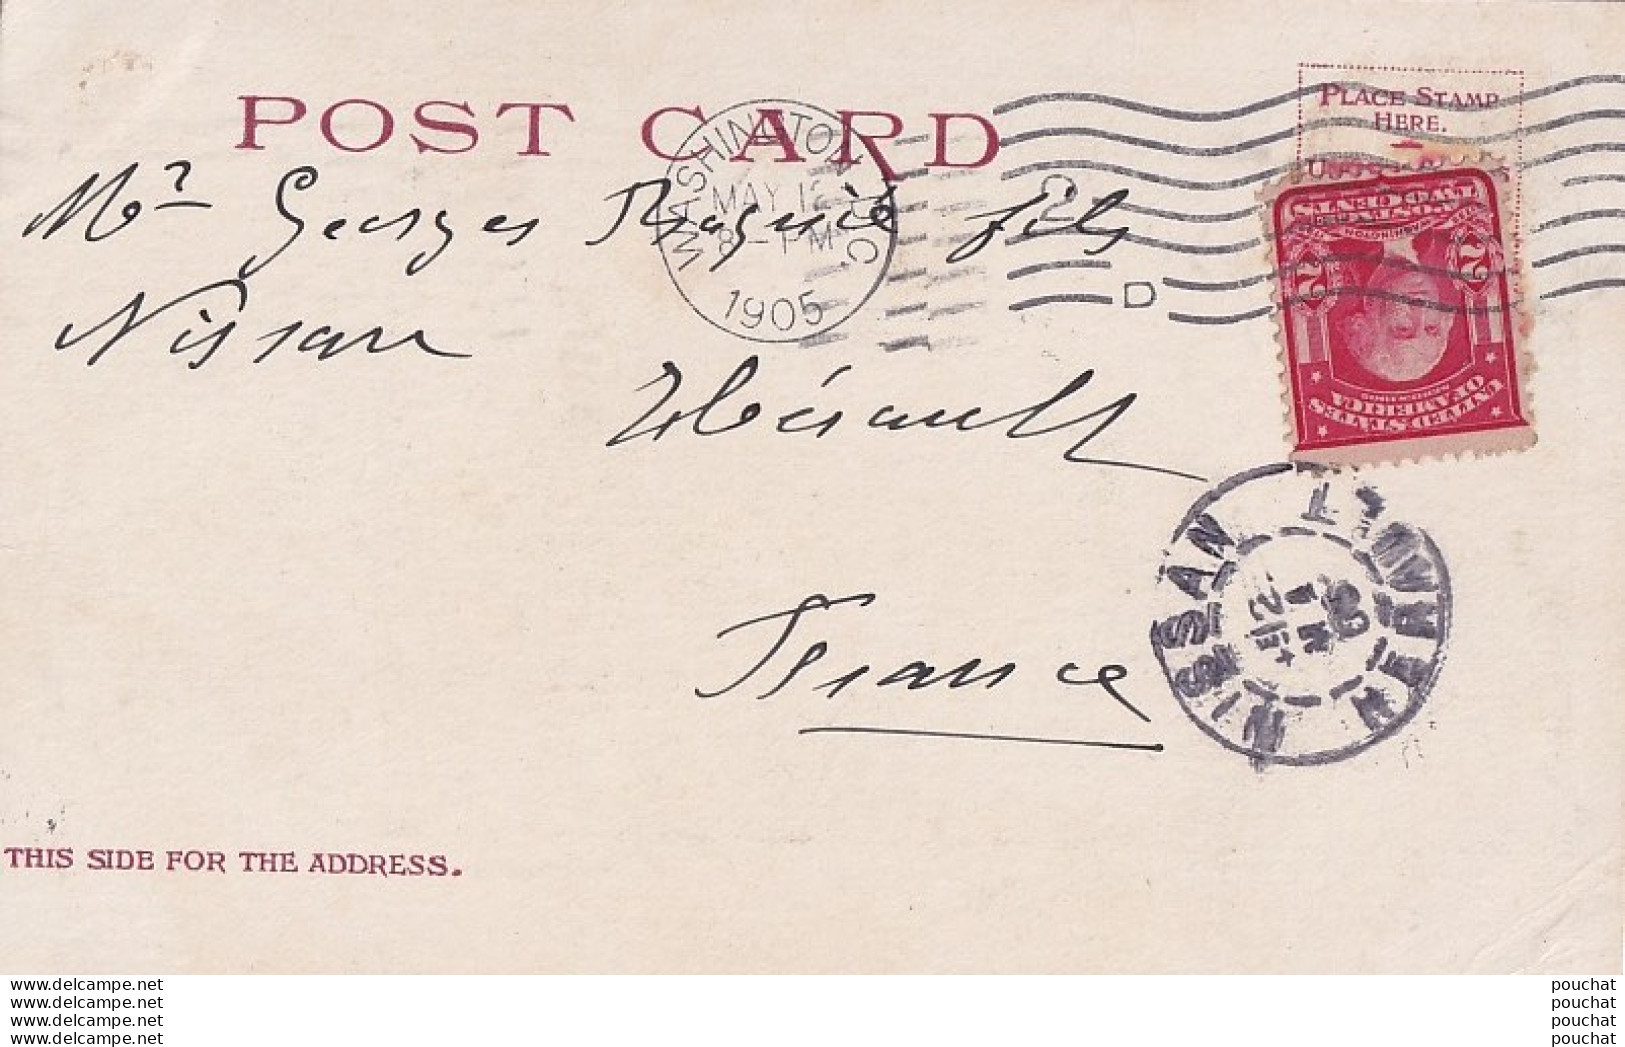 POST CARD
PLACE STAMP
HERE.
WASHINGTON D.C.
MAY 12
8 - PM
1905
D
Mr Georges Ragnié fils
Nissan
Hérault
France
UNITED STATES
OF AMERICA
POSTAGE
TWO CENTS
2 2
NISSAN HERAULT
THIS SIDE FOR THE ADDRESS.
www.delcampe.net
www.delcampe.net
www.delcampe.net
www.delcampe.net
pouchat
pouchat
pouchat
pouchat